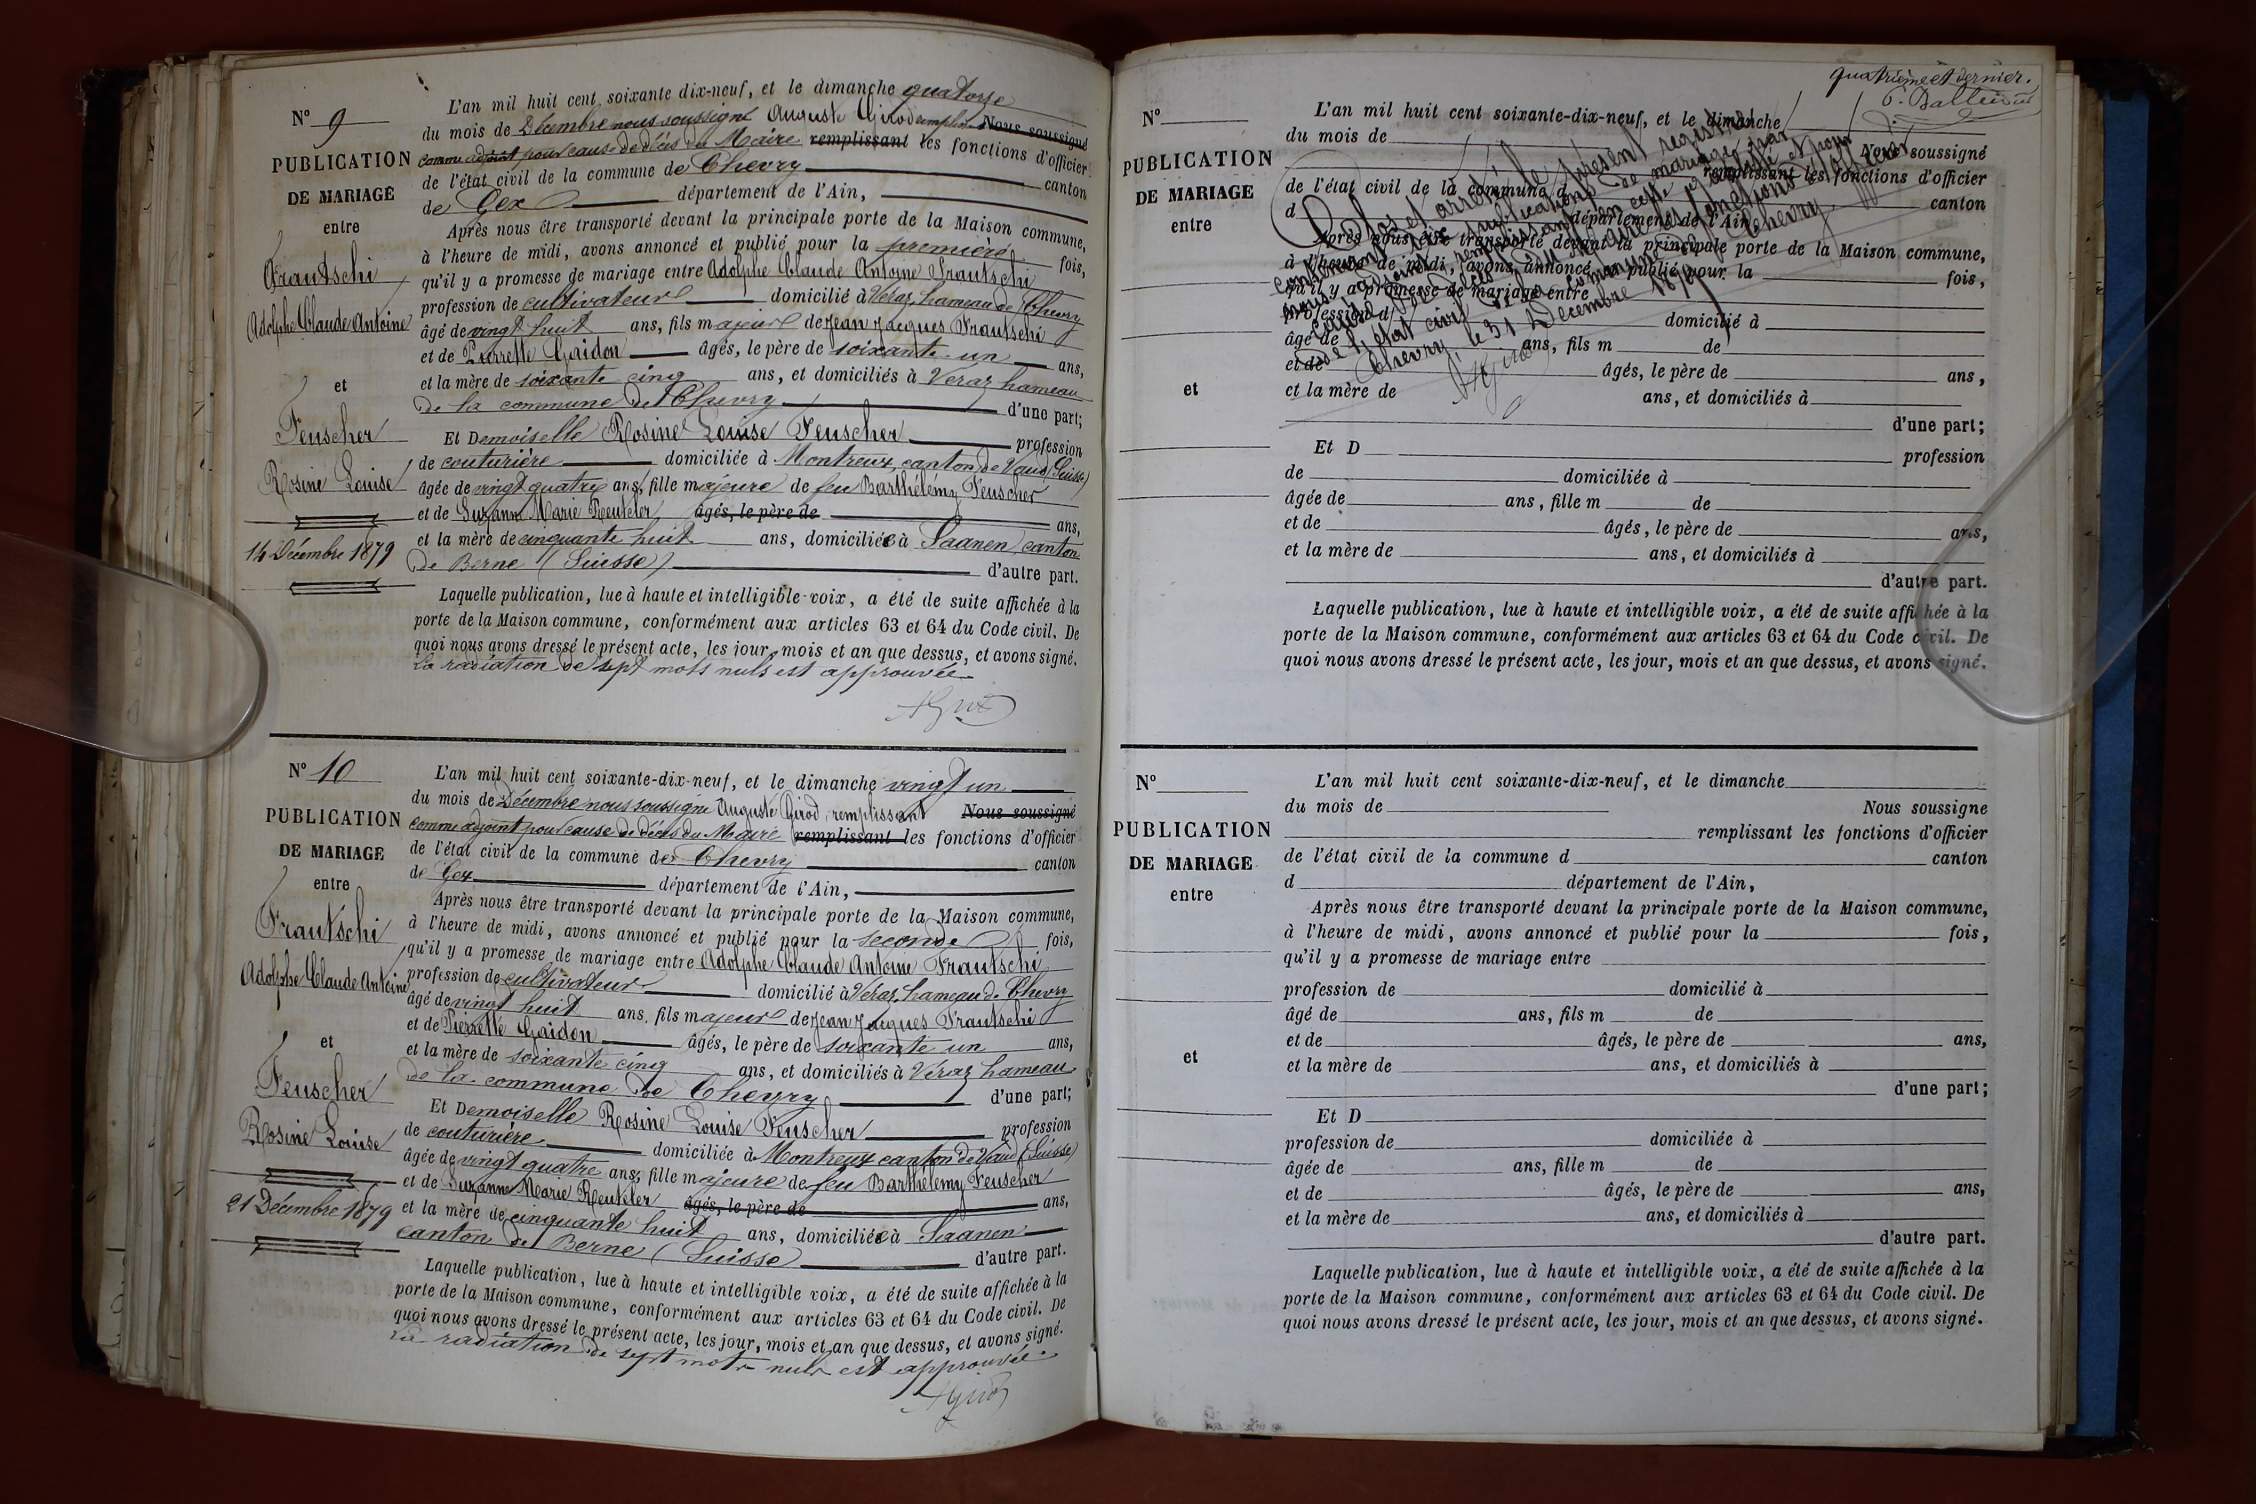 N° 9
PUBLICATION
DE MARIAGE
entre
Frautschi
Adolphe Claude Antoine
et
Feuscher
Rosine Louise
14 Décembre 1879
L'an mil huit cent soixante dix-neuf, et le dimanche quatorze
du mois de Décembre nous soussigné Auguste Girod remplissant Nous soussigné
comme adjoint pour cause de décès du Maire remplissant les fonctions d'officier
de l'état civil de la commune de Chevry canton
de Gex département de l'Ain,
Après nous être transporté devant la principale porte de la Maison commune,
à l'heure de midi, avons annoncé et publié pour la première fois,
qu'il y a promesse de mariage entre Adolphe Claude Antoine Frautschi
profession de cultivateur domicilié à Véraz hameau de Chevry
âgé de vingt huit ans, fils majeur de Jean Jacques Frautschi
et de Pierrette Gaidon âgés, le père de soixante un ans,
et la mère de soixante cinq ans, et domiciliés à Véraz hameau
de la commune de Chevry d'une part;
Et Demoiselle Rosine Louise Feuscher profession
de couturière domiciliée à Montreux, canton de Vaud (Suisse)
âgée de vingt quatre ans, fille majeure de feu Barthélemy Feuscher
et de Suzanne Marie Reuteler âgés, le père de ans,
et la mère de cinquante huit ans, domiciliée à Saanen canton
de Berne (Suisse) d'autre part.
Laquelle publication, lue à haute et intelligible voix, a été de suite affichée à la
porte de la Maison commune, conformément aux articles 63 et 64 du Code civil. De
quoi nous avons dressé le présent acte, les jour, mois et an que dessus, et avons signé.
La radiation de sept mots nuls est approuvée
AGirod
N° 10
PUBLICATION
DE MARIAGE
entre
Frautschi
Adolphe Claude Antoine
et
Feuscher
Rosine Louise
21 Décembre 1879
L'an mil huit cent soixante-dix-neuf, et le dimanche vingt un
du mois de Décembre nous soussigné Auguste Girod, remplissant Nous soussigné
comme adjoint pour cause de décès du Maire remplissant les fonctions d'officier
de l'état civil de la commune de Chevry canton
de Gex département de l'Ain,
Après nous être transporté devant la principale porte de la Maison commune,
à l'heure de midi, avons annoncé et publié pour la seconde fois,
qu'il y a promesse de mariage entre Adolphe Claude Antoine Frautschi
profession de cultivateur domicilié à Véraz, hameau de Chevry
âgé de vingt huit ans, fils majeur de Jean Jacques Frautschi
et de Pierrette Gaidon âgés, le père de soixante un ans,
et la mère de soixante cinq ans, et domiciliés à Véraz hameau
de la commune de Chevry d'une part;
Et Demoiselle Rosine Louise Feuscher profession
de couturière domiciliée à Montreux canton de Vaud (Suisse)
âgée de vingt quatre ans, fille majeure de feu Barthélemy Feuscher
et de Suzanne Marie Reuteler âgés, le père de ans,
et la mère de cinquante huit ans, domiciliée à Saanen
canton de Berne (Suisse) d'autre part.
Laquelle publication, lue à haute et intelligible voix, a été de suite affichée à la
porte de la Maison commune, conformément aux articles 63 et 64 du Code civil. De
quoi nous avons dressé le présent acte, les jour, mois et an que dessus, et avons signé.
La radiation de sept mots nuls est approuvée
AGirod
quatrième et dernier.
N°
PUBLICATION
DE MARIAGE
entre
et
L'an mil huit cent soixante-dix-neuf, et le dimanche
du mois de Nous soussigné
remplissant les fonctions d'officier
de l'état civil de la commune d canton
d département de l'Ain,
Après nous être transporté devant la principale porte de la Maison commune,
à l'heure de midi, avons annoncé et publié pour la fois,
qu'il y a promesse de mariage entre
profession d domicilié à
âgé de ans, fils m de
et de âgés, le père de ans,
et la mère de ans, et domiciliés à
d'une part;
Et D profession
de domiciliée à
âgée de ans, fille m de
et de âgés, le père de ans,
et la mère de ans, et domiciliés à
d'autre part.
Laquelle publication, lue à haute et intelligible voix, a été de suite affichée à la
porte de la Maison commune, conformément aux articles 63 et 64 du Code civil. De
quoi nous avons dressé le présent acte, les jour, mois et an que dessus, et avons signé.
Clos et arrêté le présent registre
contenant dix publications de mariage par
nous adjoint remplissant en cette qualité et pour
cause de décès du Maire les fonctions d'officier
de l'état civil de la commune de Chevry
Chevry le 31 Décembre 1879
AGirod
N°
PUBLICATION
DE MARIAGE
entre
et
L'an mil huit cent soixante-dix-neuf, et le dimanche
du mois de Nous soussigné
remplissant les fonctions d'officier
de l'état civil de la commune d canton
d département de l'Ain,
Après nous être transporté devant la principale porte de la Maison commune,
à l'heure de midi, avons annoncé et publié pour la fois,
qu'il y a promesse de mariage entre
profession de domicilié à
âgé de ans, fils m de
et de âgés, le père de ans,
et la mère de ans, et domiciliés à
d'une part;
Et D
profession de domiciliée à
âgée de ans, fille m de
et de âgés, le père de ans,
et la mère de ans, et domiciliés à
d'autre part.
Laquelle publication, lue à haute et intelligible voix, a été de suite affichée à la
porte de la Maison commune, conformément aux articles 63 et 64 du Code civil. De
quoi nous avons dressé le présent acte, les jour, mois et an que dessus, et avons signé.